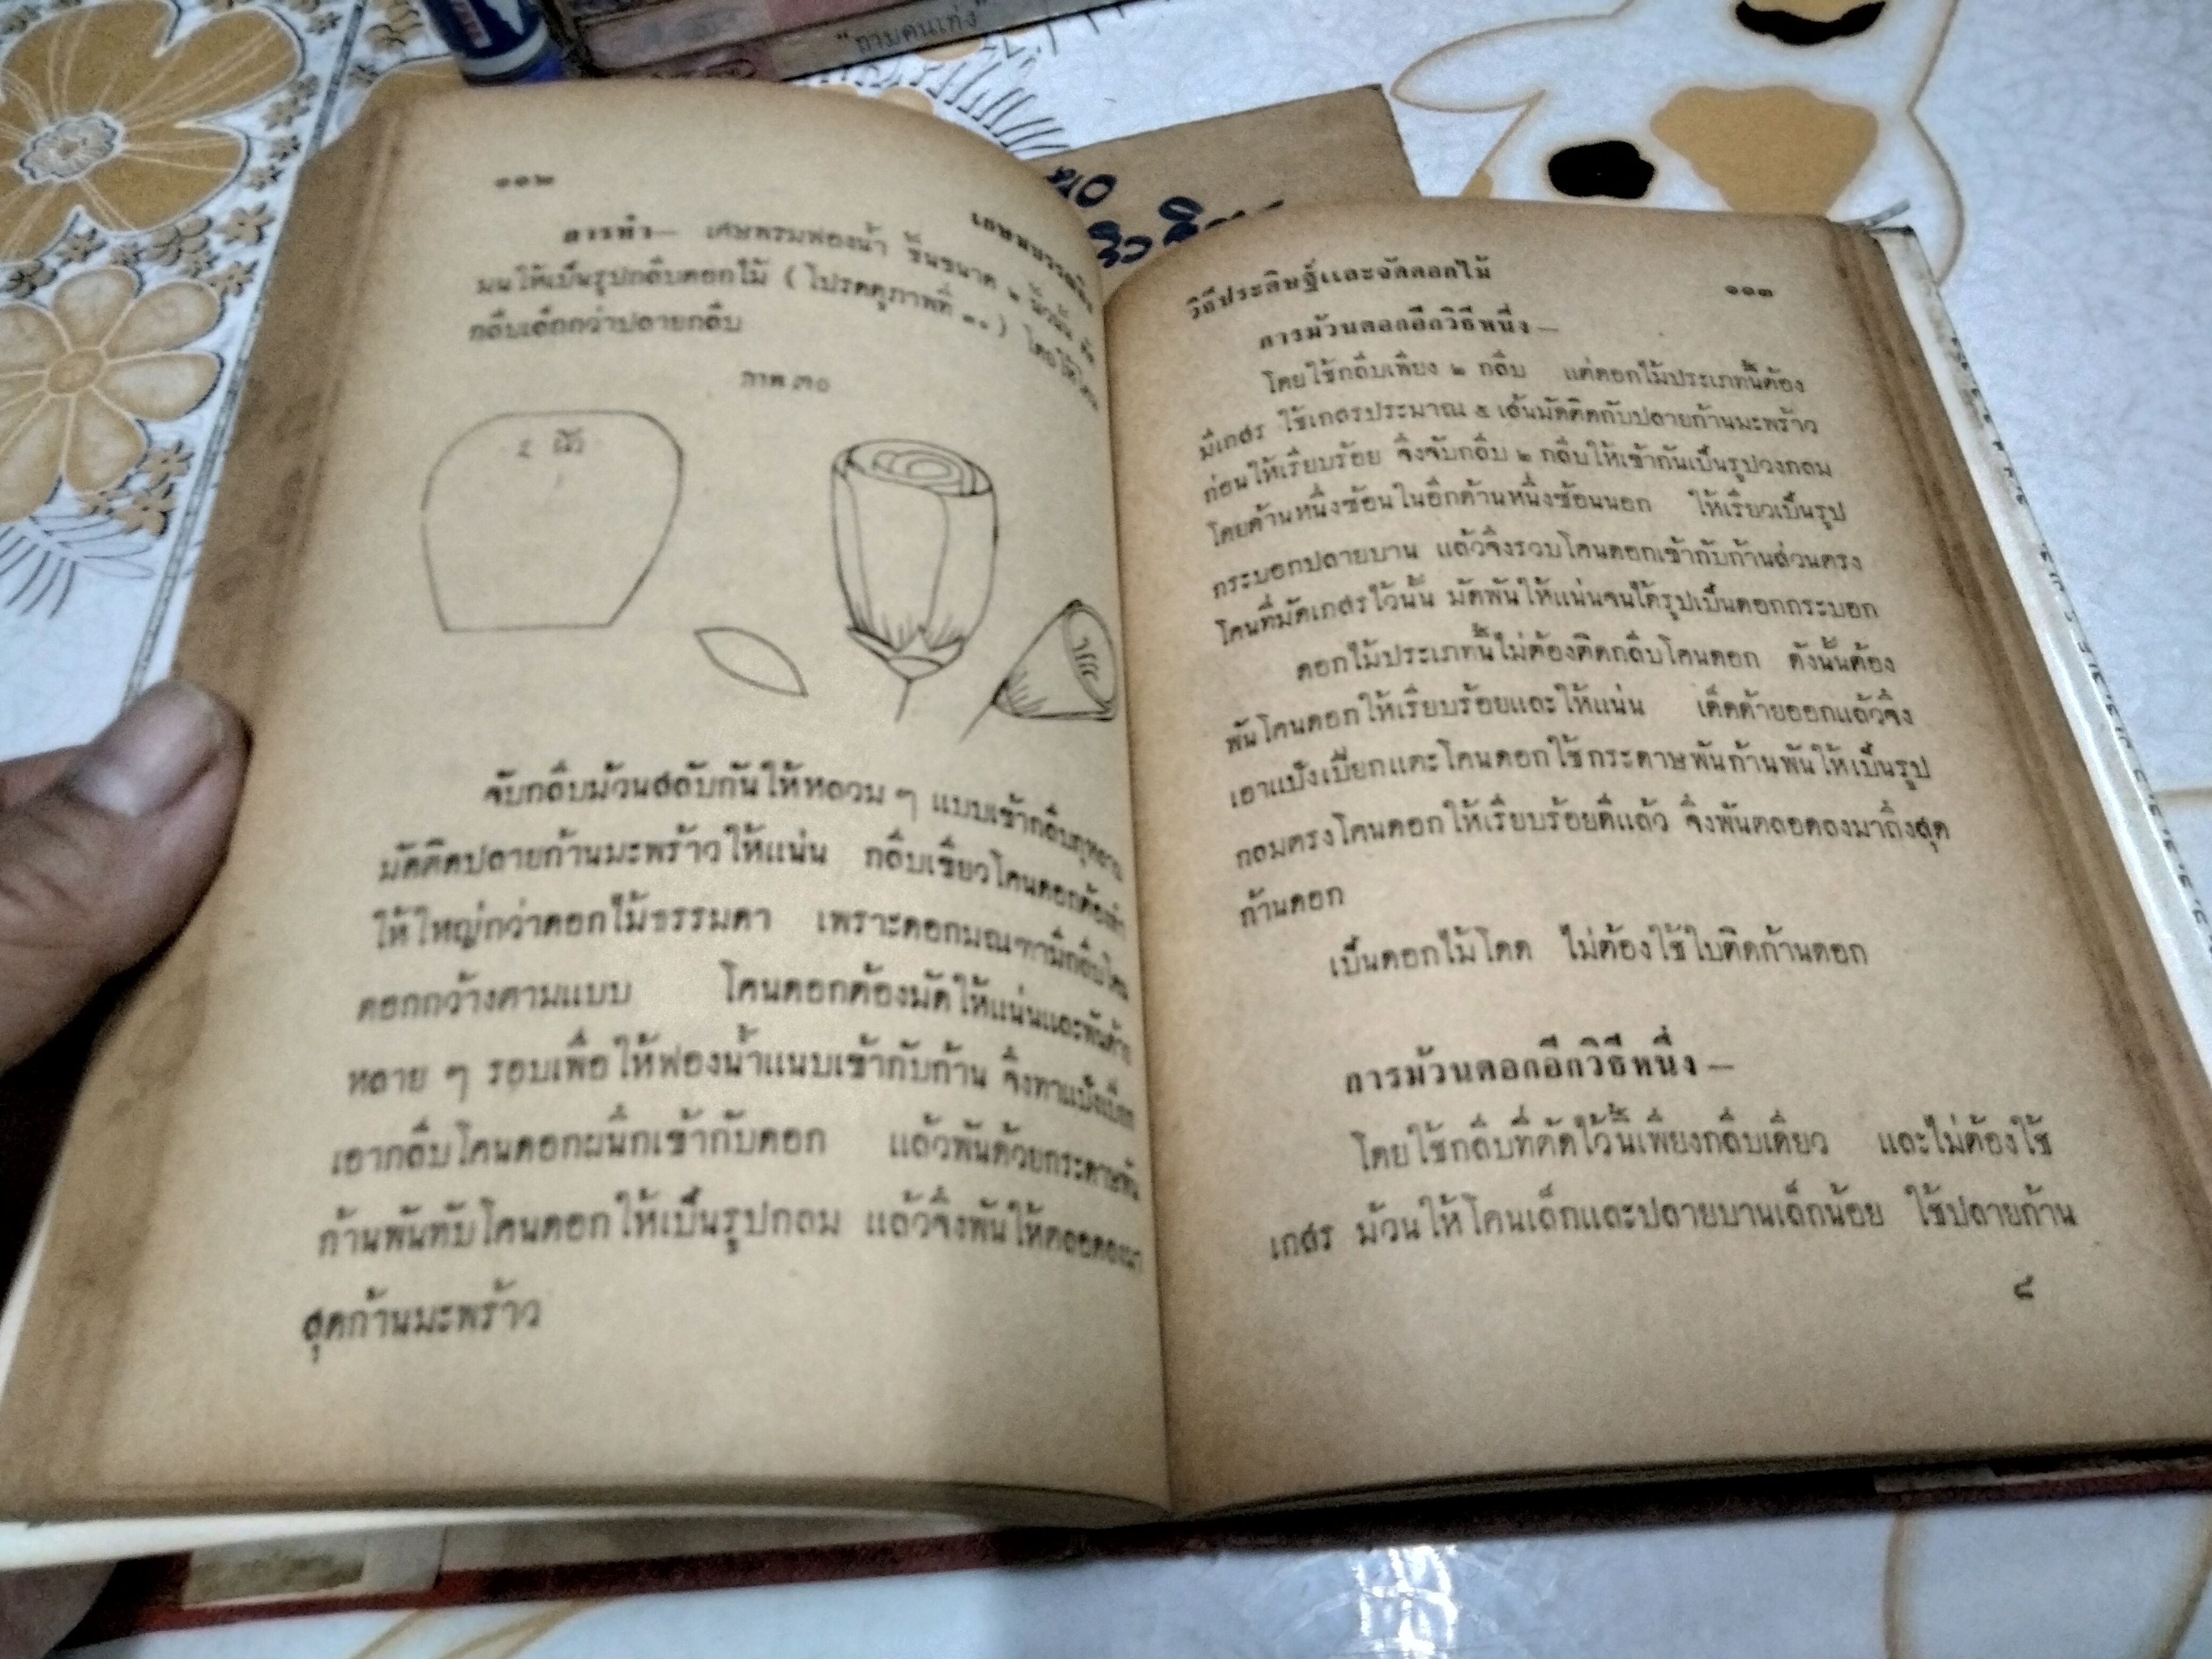 "ถามคนเก่ง"
๑๑๒
การทำ— เศษพรมฟองน้ำ ชิ้นขนาด ๒ นิ้วนั้น ตัด
มนให้เป็นรูปกลีบดอกไม้ ( โปรดดูภาพที่ ๓๐ ) โดยให้โคน
กลีบเล็กกว่าปลายกลีบ
ภาพ ๓๐
๕ นิ้ว
จับกลีบม้วนสลับกันให้หลวม ๆ แบบเข้ากลีบกุหลาบ
มัดติดปลายก้านมะพร้าวให้แน่น กลีบเขียวโคนดอกต้องทำ
ให้ใหญ่กว่าดอกไม้ธรรมดา เพราะดอกมณฑามีกลีบโคน
ดอกกว้างตามแบบ โคนดอกต้องมัดให้แน่นและพันด้าย
หลาย ๆ รอบเพื่อให้ฟองน้ำแนบเข้ากับก้าน จึงทาแป้งเปียก
เอากลีบโคนดอกผนึกเข้ากับดอก แล้วพันด้วยกระดาษพัน
ก้านพันทับโคนดอกให้เป็นรูปกลม แล้วจึงพันให้ตลอดลงมา
สุดก้านมะพร้าว
วิธีประดิษฐ์และจัดดอกไม้
๑๑๓
การม้วนดอกอีกวิธีหนึ่ง—
โดยใช้กลีบเพียง ๒ กลีบ แต่ดอกไม้ประเภทนี้ต้อง
มีเกสร ใช้เกสรประมาณ ๕ เส้นมัดติดกับปลายก้านมะพร้าว
ก่อนให้เรียบร้อย จึงจับกลีบ ๒ กลีบให้เข้ากันเป็นรูปวงกลม
โดยด้านหนึ่งซ้อนในอีกด้านหนึ่งซ้อนนอก ให้เรียวเป็นรูป
กระบอกปลายบาน แล้วจึงรวบโคนดอกเข้ากับก้านส่วนตรง
โคนที่มัดเกสรไว้นั้น มัดพันให้แน่นจนได้รูปเป็นดอกกระบอก
ดอกไม้ประเภทนี้ไม่ต้องติดกลีบโคนดอก ดังนั้นต้อง
พันโคนดอกให้เรียบร้อยและให้แน่น เด็ดด้ายออกแล้วจึง
เอาแป้งเปียกแตะโคนดอกใช้กระดาษพันก้านพันให้เป็นรูป
กลมตรงโคนดอกให้เรียบร้อยดีแล้ว จึงพันตลอดลงมาถึงสุด
ก้านดอก
เป็นดอกไม้โดด ไม่ต้องใช้ใบติดก้านดอก
การม้วนดอกอีกวิธีหนึ่ง—
โดยใช้กลีบที่ตัดไว้นี้เพียงกลีบเดียว และไม่ต้องใช้
เกสร ม้วนให้โคนเล็กและปลายบานเล็กน้อย ใช้ปลายก้าน
๘